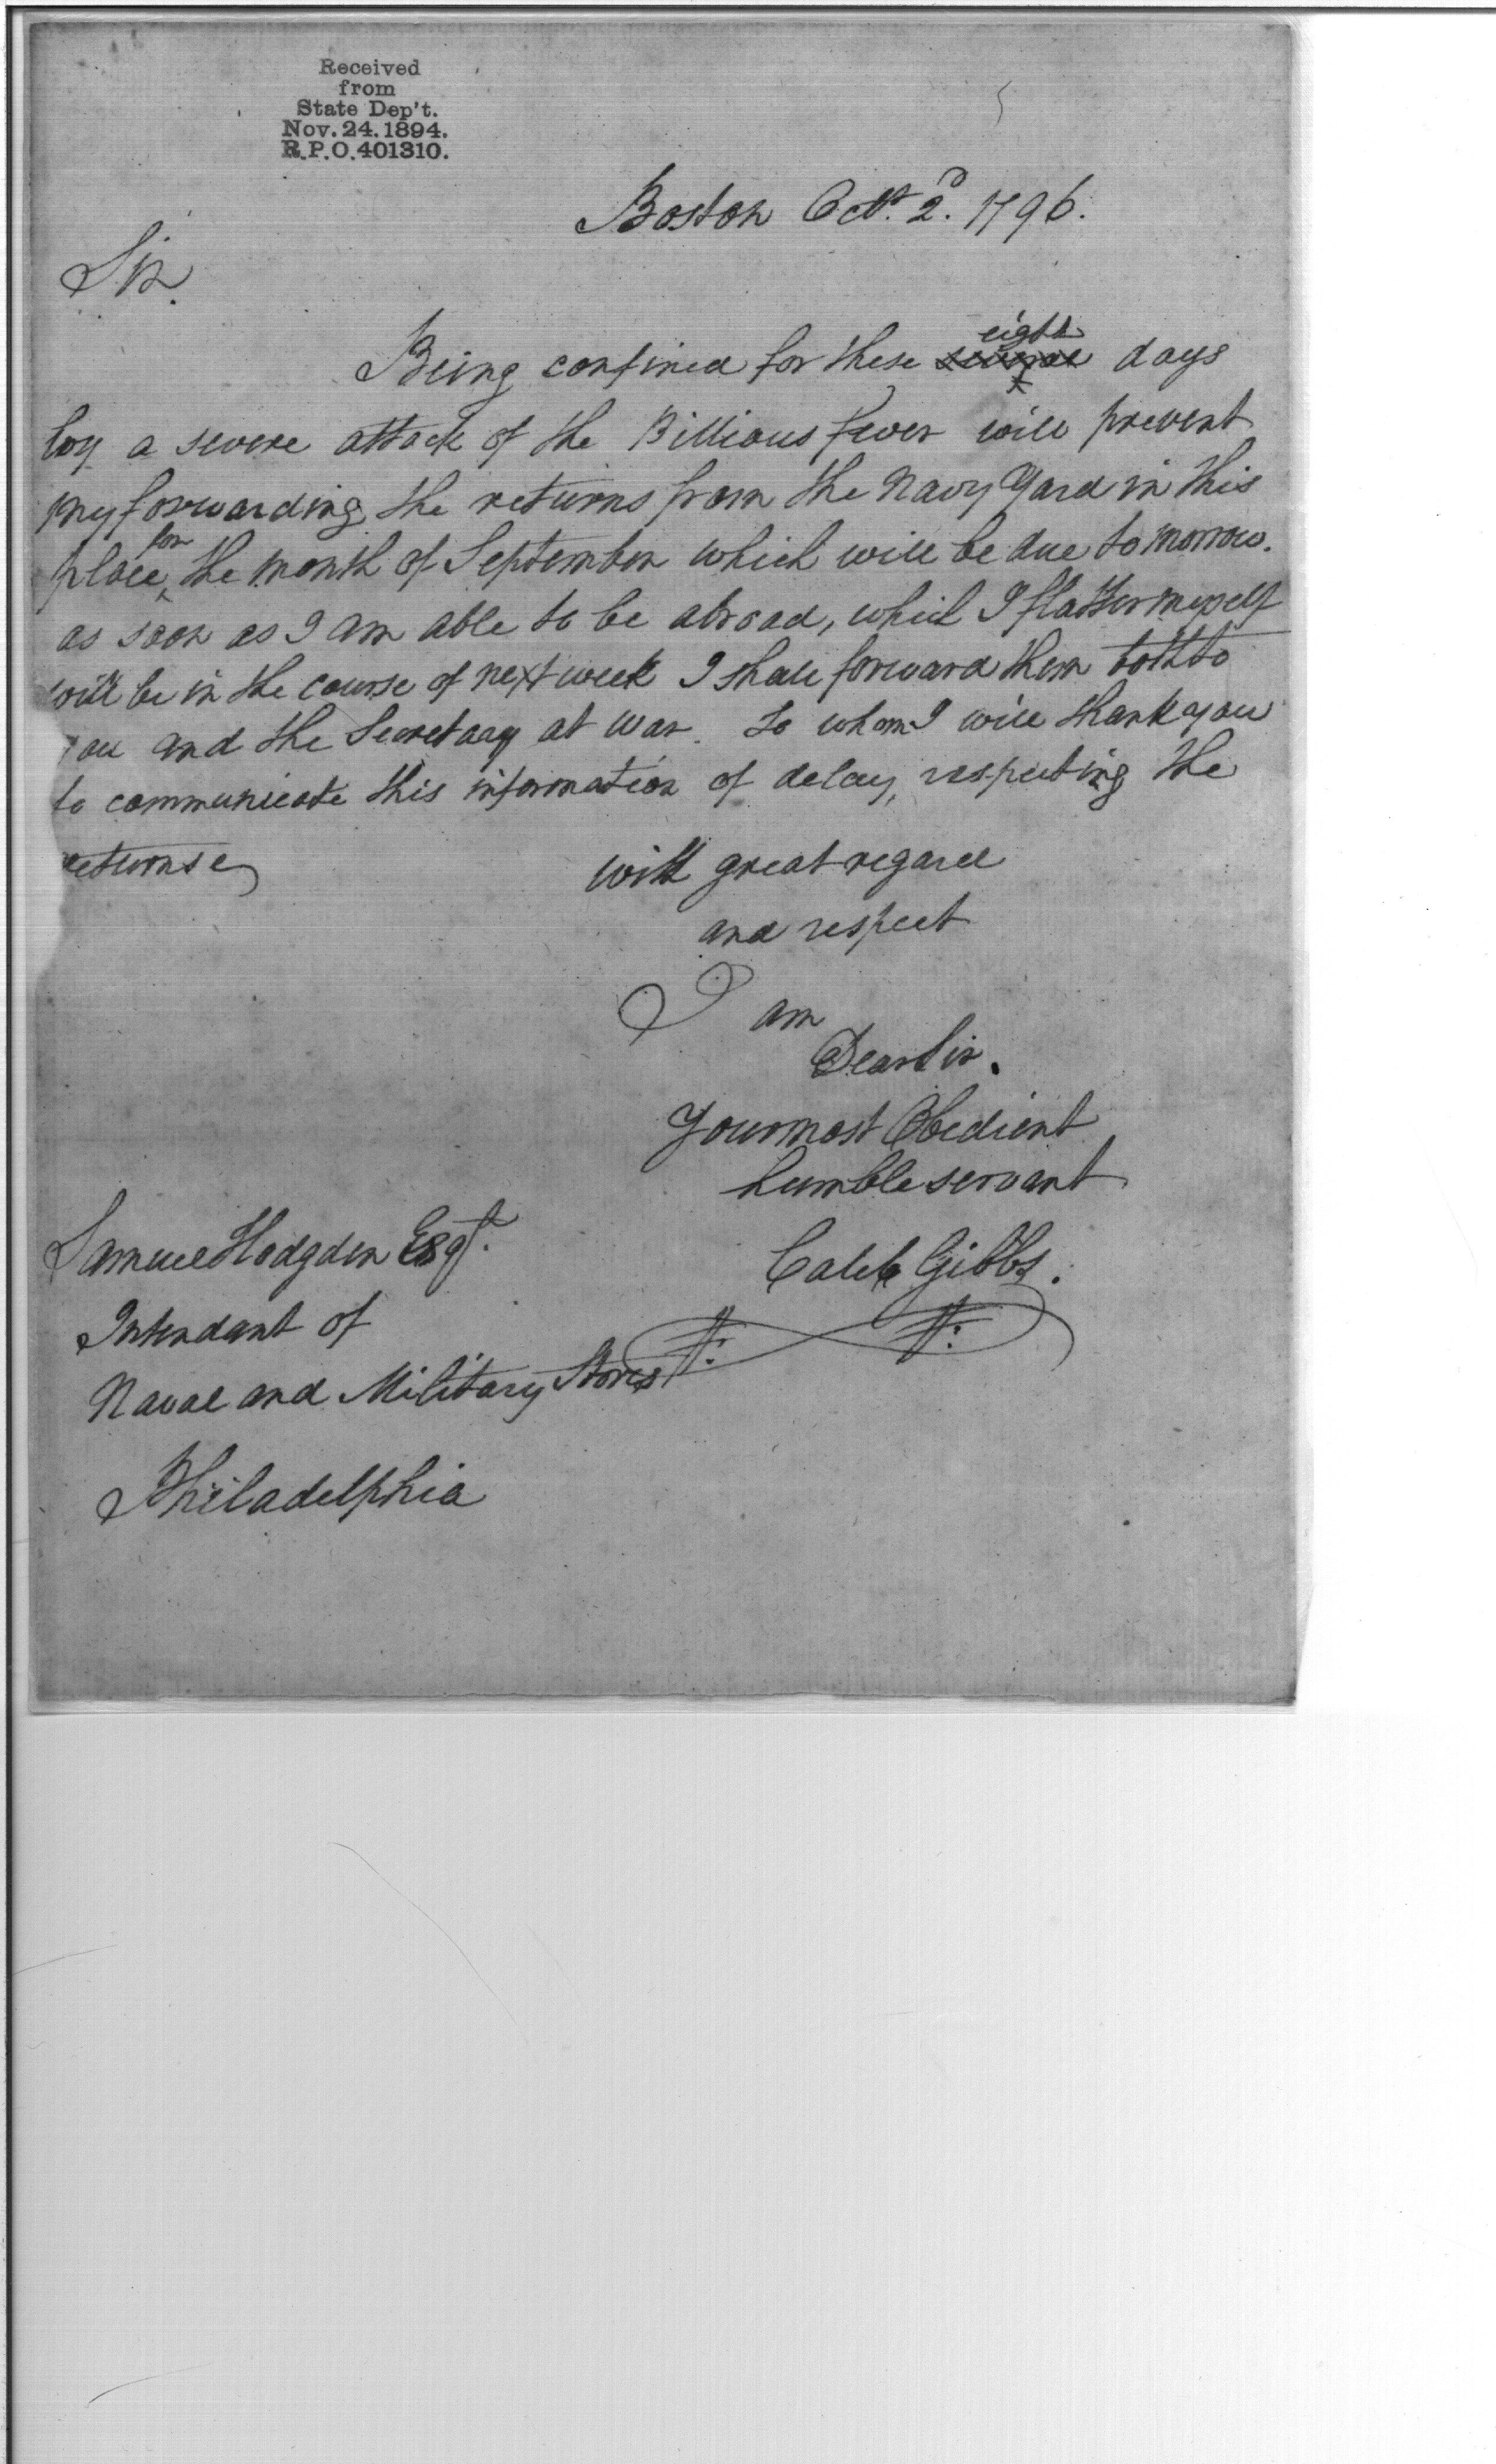 Received
from
State Dep't.
Nov. 24. 1894.
R.P.O. 401310.
Boston Octr. 2d. 1796.
Sir.
Being confined for these several eight days
by a severe attack of the Billious fever will prevent
my forwarding the returns from the Navy Yard in this
place, for the month of September which will be due tomorrow.
as soon as I am able to be abroad, which I flatter myself
will be in the course of next week I shall forward them both to
you and the Secretary at War. to whom I will thank you
to communicate this information of delay, respecting the
returns
with great regard
and respect
I am
Dear Sir.
Your most Obedient
humble servant
Caleb Gibbs.
Samuel Hodgden Esqr.
Intendant of
Naval and Military Stores
Philadelphia